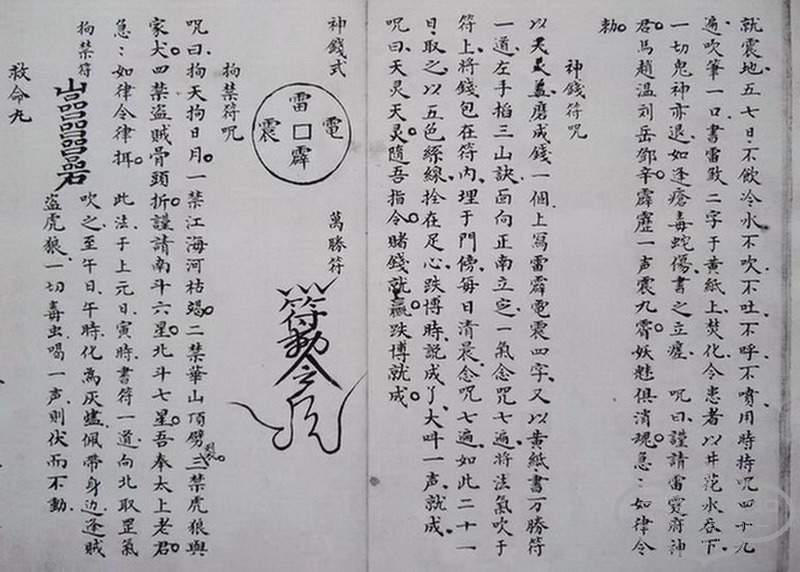 就震地五七日不飲冷水不吹不吐不呼不噴用時持咒四十九
遍吹筆一口書雷致二字于黃紙上焚化令患者以井花水吞下
一切鬼神亦退如逢瘡毒蛇傷書之立痊 咒曰謹請雷霆府神
君馬趙溫刘岳鄧辛霹靂一声震九霄妖魅俱消魂急:如律令
勑
神錢符咒
以天灵盖磨成錢一個上寫雷霹電震四字又以黃紙書万勝符
一道左手掐三山訣面向正南立定一氣念咒七遍將法氣吹于
符上將錢包在符內埋于門傍每日清晨念咒七遍如此二十一
日取之以五色絲線拴在足心跌博時説成了大叫一声就成
咒曰天灵天灵隨吾指令賭錢就贏跌博就成
神錢式
雷電震霹
萬勝符
符動令
拘禁符咒
咒曰拘天拘日月一禁江海河枯竭二禁華山頂劈裂三禁虎狼與
家犬四禁盜賊骨頭折謹請南斗六星北斗七星吾奉太上老君
急:如律令律拜
拘禁符
此法于上元日寅時書符一道向北取罡氣
吹之至午日午時化為灰爐佩帶身边逢賊
盜虎狼一切毒虫喝一声則伏而不動
救命丸